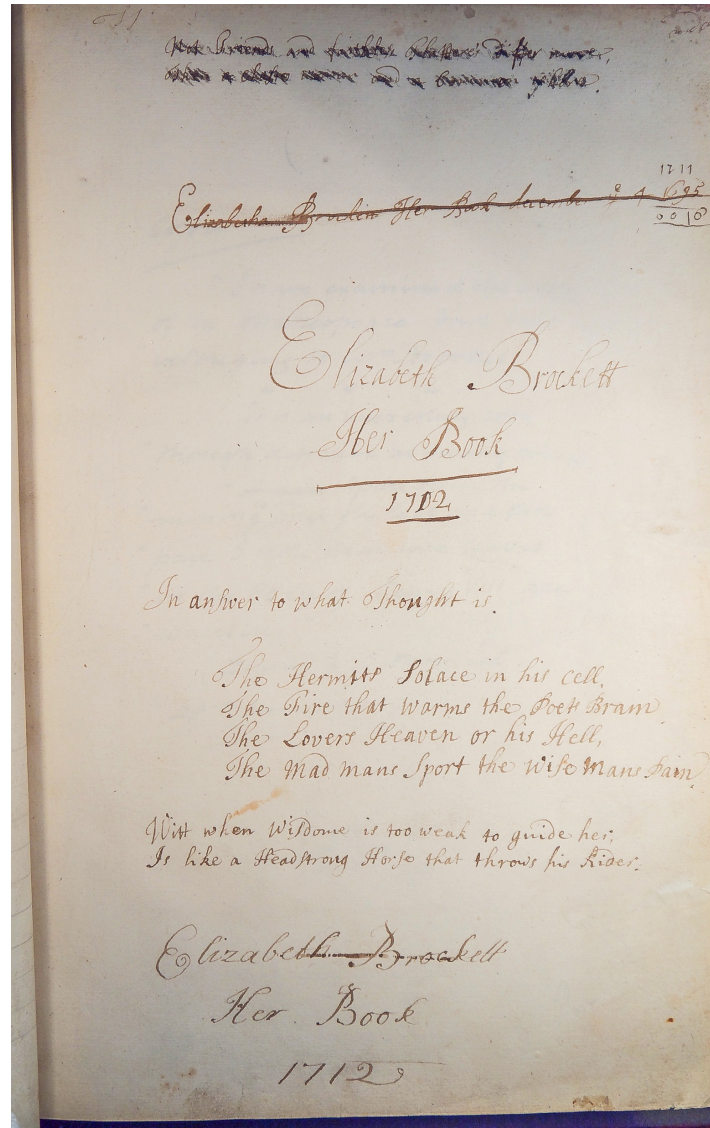 1711
Elizabeth Her Book december 1695
0016
Elizabeth Brockett
Her Book
1712
In answer to what Thought is.
The Hermits Solace in his Cell,
The Fire that warms the Poets Brain
The Lovers Heaven or his Hell,
The Mad mans Sport the Wise Mans Pain.
Witt when Wisdome is too weak to guide her,
Is like a Headstrong Horse that throws his Rider.
Elizabeth Brockett
Her Book
1712